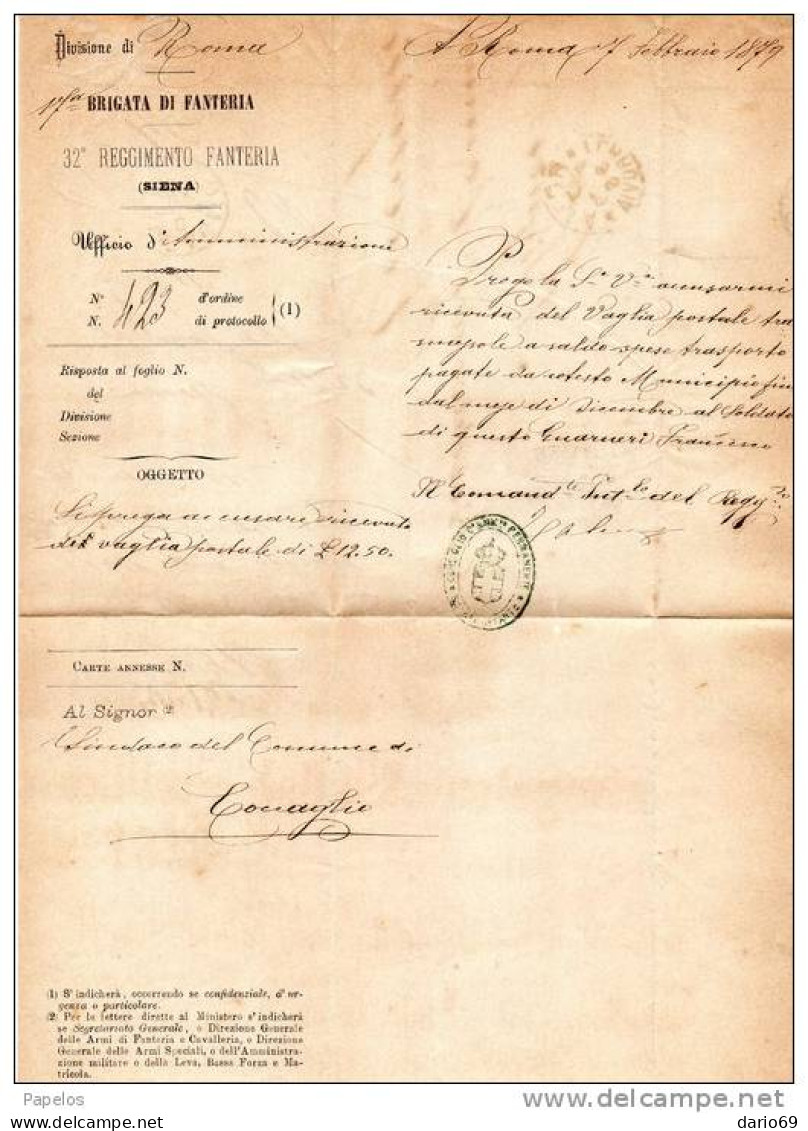 Divisione di Roma
A Roma 7 Febbraio 1879
17ma BRIGATA DI FANTERIA
32º REGGIMENTO FANTERIA
(SIENA)
Ufficio d'Amministrazione
Nº 423 d'ordine
N. di protocollo (1)
Risposta al foglio N.
del
Divisione
Sezione
OGGETTO
Si prega accusare ricevuta
del vaglia postale di £ 12.50.
Prego la Sa Va accusarmi
ricevuta del Vaglia postale tra
a saldo spese trasporto
pagate da cotesto Municipio fin
dal mese di Dicembre al Soldato
di questo Guarneri Francesco
Il Comandte del Reggto
CARTE ANNESSE N.
Al Signor (2)
Sindaco del Comune di
Coccaglio
(1) S'indicherà, occorrendo se confidenziale, d'ur-
genza o particolare.
(2) Per le lettere dirette al Ministero s'indicherà
se Segretariato Generale, o Direzione Generale
delle Armi di Fanteria e Cavalleria, o Direzione
Generale delle Armi Speciali, o dell'Amministra-
zione militare o della Leva, Bassa Forza e Ma-
tricola.
Papelos
delcampe.net
dario69